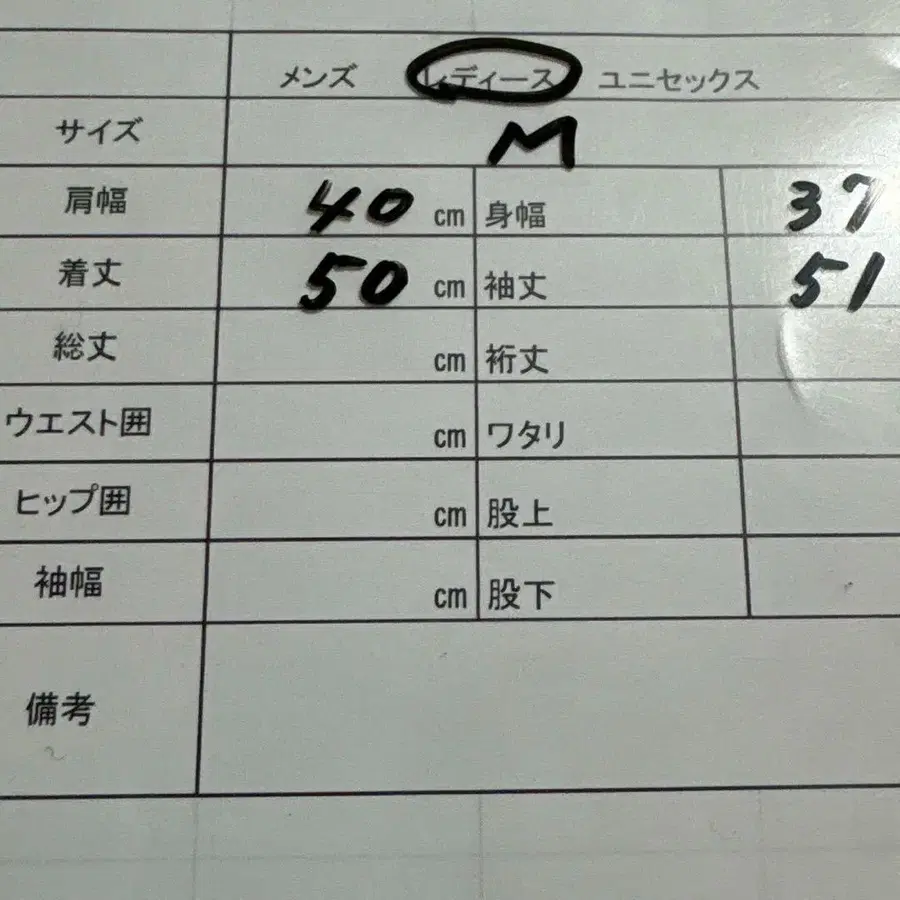 メンズ レディース ユニセックス
サイズ M
肩幅 40 cm 身幅 37
着丈 50 cm 袖丈 51
総丈 cm 裄丈
ウエスト囲 cm ワタリ
ヒップ囲 cm 股上
袖幅 cm 股下
備考